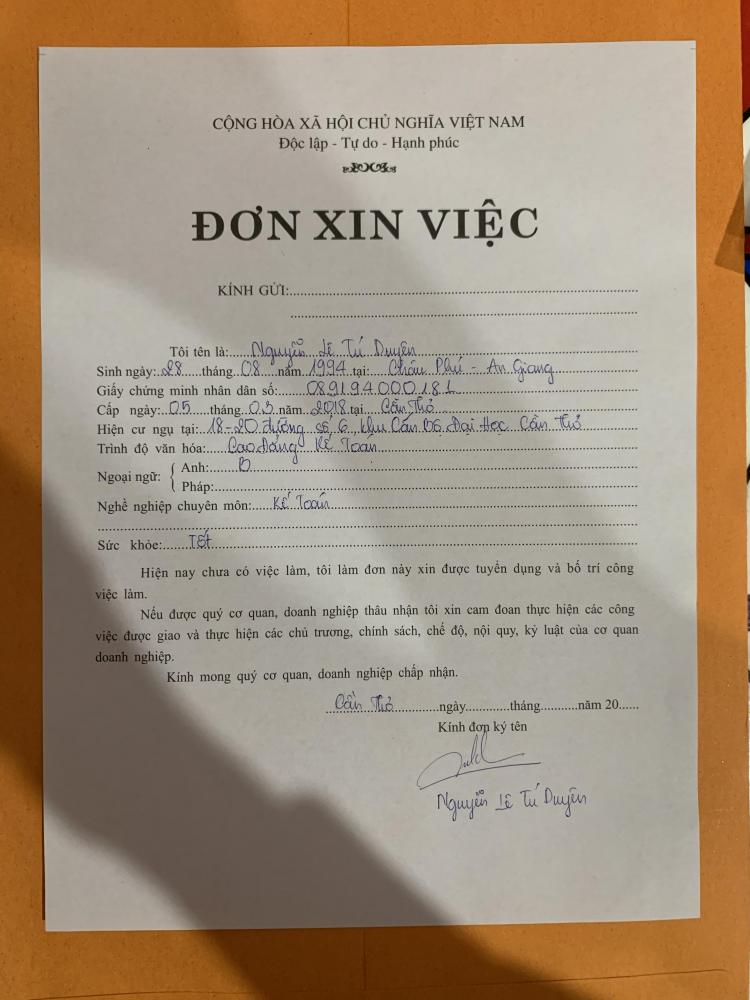 CỘNG HÒA XÃ HỘI CHỦ NGHĨA VIỆT NAM
Độc lập - Tự do - Hạnh phúc
ĐƠN XIN VIỆC
KÍNH GỬI:
Tôi tên là: Nguyễn Lê Tú Duyên
Sinh ngày: 28 tháng 08 năm 1994 tại: Châu Phú - An Giang
Giấy chứng minh nhân dân số: 089194000181
Cấp ngày: 05 tháng 03 năm 2018 tại Cần Thơ
Hiện cư ngụ tại: 18-20 đường số 6, khu Cán Bộ Đại Học Cần Thơ
Trình độ văn hóa: Cao Đẳng Kế Toán
Ngoại ngữ: Anh: B
Pháp:
Nghề nghiệp chuyên môn: Kế Toán
Sức khỏe: Tốt
Hiện nay chưa có việc làm, tôi làm đơn này xin được tuyển dụng và bố trí công
việc làm.
Nếu được quý cơ quan, doanh nghiệp thâu nhận tôi xin cam đoan thực hiện các công
việc được giao và thực hiện các chủ trương, chính sách, chế độ, nội quy, kỷ luật của cơ quan
doanh nghiệp.
Kính mong quý cơ quan, doanh nghiệp chấp nhận.
Cần Thơ ngày tháng năm 20
Kính đơn ký tên
Nguyễn Lê Tú Duyên